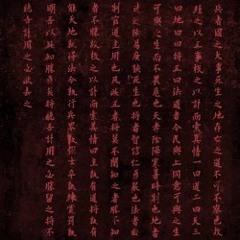 兵者國之大事死生之地存亡之道不可不察也故
經之以五事校之以計而索其情一曰道二曰天三
曰地四曰將五曰法道者令民與上同意可與之生
可與之死而不畏危也天者陰陽寒暑時制也地者
遠近險易廣狹死生也將者智信仁勇嚴也法者曲
制官道主用也凡此五者將莫不聞知之者勝不知
者不勝故校之以計而索其情曰主孰有道將孰有
能天地孰得法令孰行兵衆孰強士卒孰練賞罰孰
明吾以此知勝負矣將聽吾計用之必勝留之將不
聽吾計用之必敗去之